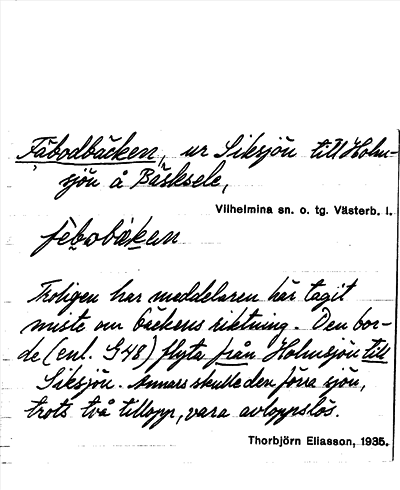 Fäbodbäcken, ur Siksjön till Holm-
sjön å Bäsksele,
Vilhelmina sn. o. tg. Västerb. l.
fèbobäkan
Troligen har meddelaren här tagit
miste om bäckens riktning. Den bor-
de (enl. G48) flyta från Holmsjön till
Siksjön. Annars skulle den förra sjön,
trots två tillopp, vara avloppslös.
Thorbjörn Eliasson, 1935.